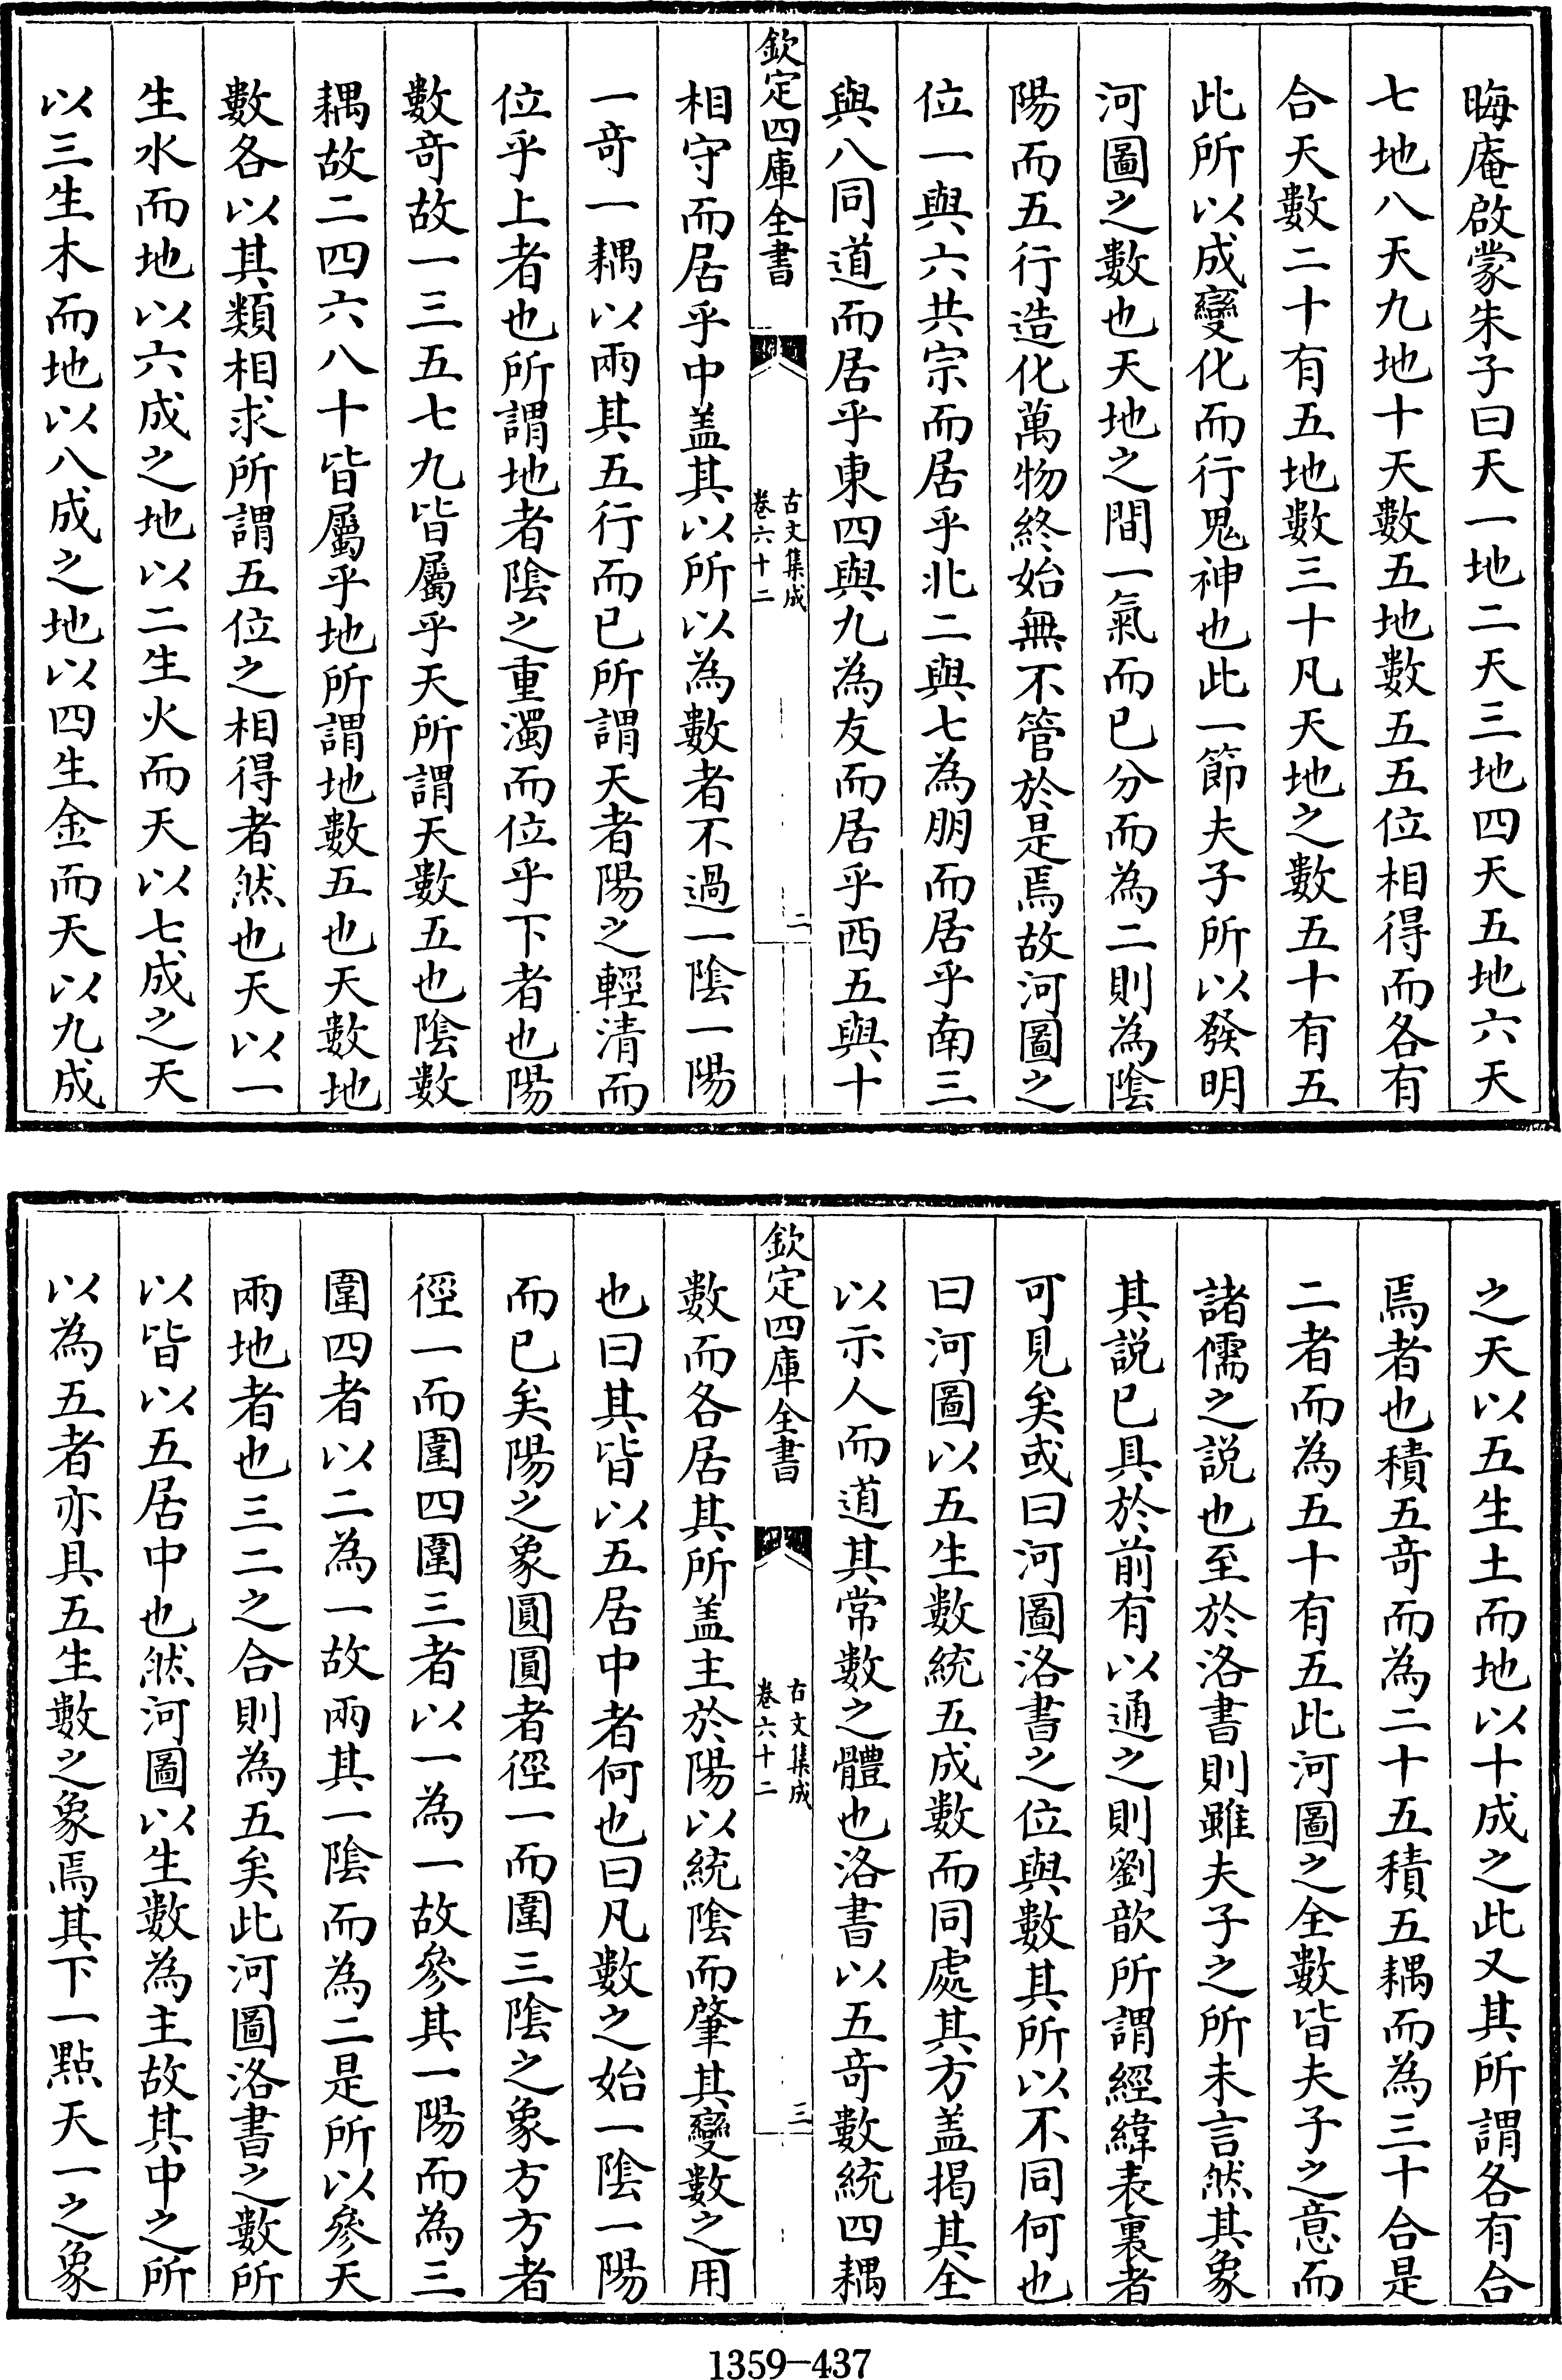 晦庵啟蒙朱子曰天一地二天三地四天五地六天
七地八天九地十天數五地數五五位相得而各有
合天數二十有五地數三十凡天地之數五十有五
此所以成變化而行鬼神也此一節夫子所以發明
河圖之數也天地之間一氣而已分而為二則為陰
陽而五行造化萬物終始無不管於是焉故河圖之
位一與六共宗而居乎北二與七為朋而居乎南三
與八同道而居乎東四與九為友而居乎西五與十
欽定四庫全書
古文集成
卷六十二
二
相守而居乎中盖其以所以為數者不過一陰一陽
一竒一耦以兩其五行而已所謂天者陽之輕清而
位乎上者也所謂地者陰之重濁而位乎下者也陽
數竒故一三五七九皆屬乎天所謂天數五也陰數
耦故二四六八十皆屬乎地所謂地數五也天數地
數各以其類相求所謂五位之相得者然也天以一
生水而地以六成之地以二生火而天以七成之天
以三生木而地以八成之地以四生金而天以九成
之天以五生土而地以十成之此又其所謂各有合
焉者也積五竒而為二十五積五耦而為三十合是
二者而為五十有五此河圖之全數皆夫子之意而
諸儒之説也至於洛書則雖夫子之所未言然其象
其説已具於前有以通之則劉歆所謂經緯表裏者
可見矣或曰河圖洛書之位與數其所以不同何也
曰河圖以五生數統五成數而同處其方盖揭其全
以示人而道其常數之體也洛書以五竒數統四耦
欽定四庫全書
古文集成
卷六十二
三
數而各居其所盖主於陽以統陰而肇其變數之用
也曰其皆以五居中者何也曰凡數之始一陰一陽
而已矣陽之象圓圓者徑一而圍三陰之象方方者
徑一而圍四圍三者以一為一故參其一陽而為三
圍四者以二為一故兩其一陰而為二是所以參天
兩地者也三二之合則為五矣此河圖洛書之數所
以皆以五居中也然河圖以生數為主故其中之所
以為五者亦具五生數之象焉其下一點天一之象
1359-437